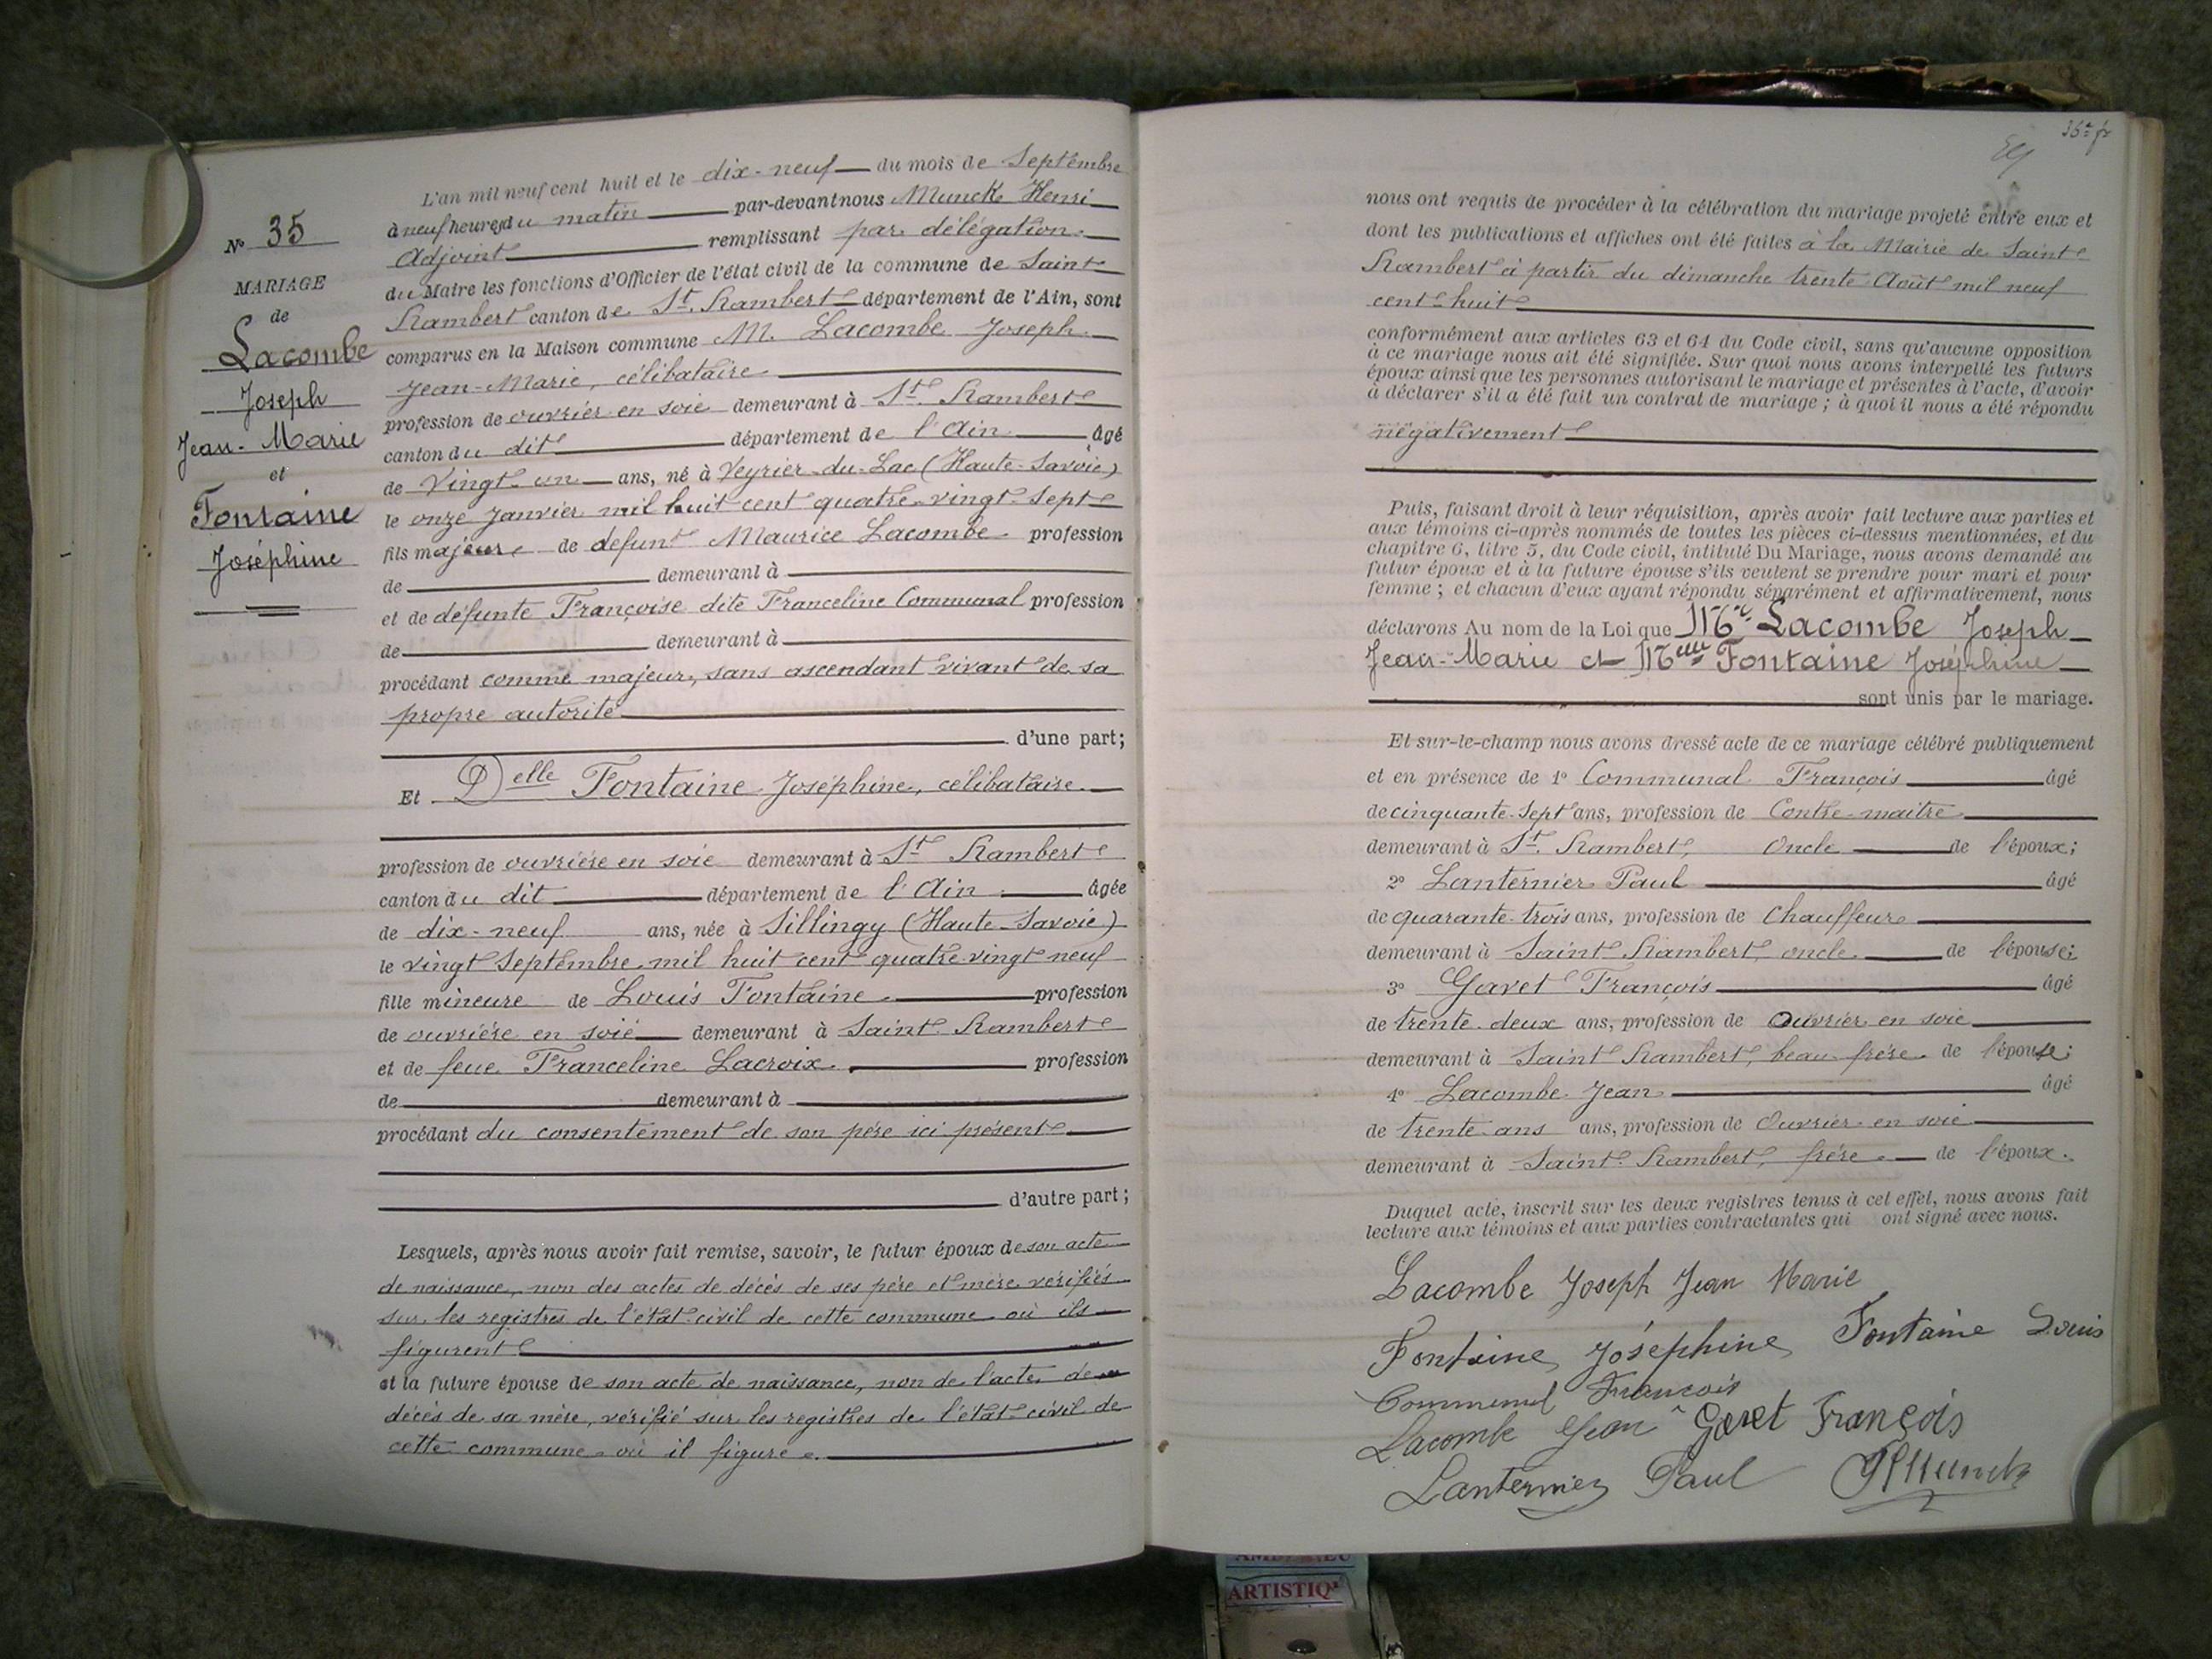 N° 35
MARIAGE
de
Lacombe
Joseph
Jean-Marie
et
Fontaine
Joséphine
L'an mil neuf cent huit et le dix-neuf du mois de Septembre
à neuf heures du matin par-devant nous Munck Henri
Adjoint remplissant par délégation
du Maire les fonctions d'Officier de l'état civil de la commune de Saint
Rambert canton de St. Rambert département de l'Ain, sont
comparus en la Maison commune M. Lacombe Joseph
Jean-Marie, célibataire
profession de ouvrier en soie demeurant à St. Rambert
canton du dit département de l'Ain âgé
de Vingt-un ans, né à Veyrier-du-Lac (Haute-Savoie)
le onze Janvier mil huit cent quatre-vingt-sept
fils majeur de defunt Maurice Lacombe profession
de demeurant à
et de défunte Françoise dite Franceline Communal profession
de demeurant à
procédant comme majeur, sans ascendant vivant de sa
propre autorité
d'une part;
Et Delle Fontaine Joséphine, célibataire
profession de ouvrière en soie demeurant à St Rambert
canton du dit département de l'Ain âgée
de dix-neuf ans, née à Sillingy (Haute-Savoie)
le vingt Septembre mil huit cent quatre-vingt neuf
fille mineure de Louis Fontaine profession
de ouvrière en soie demeurant à Saint Rambert
et de feue Franceline Lacroix profession
de demeurant à
procédant du consentement de son père ici présent
d'autre part;
Lesquels, après nous avoir fait remise, savoir, le futur époux de son acte
de naissance, non des actes de décès de ses père et mère vérifiés
sur les registres de l'état-civil de cette commune où ils
figurent
et la future épouse de son acte de naissance, non de l'acte de
décès de sa mère, vérifié sur les registres de l'état-civil de
cette commune où il figure.
nous ont requis de procéder à la célébration du mariage projeté entre eux et
dont les publications et affiches ont été faites à la Mairie de Saint
Rambert à partir du dimanche trente Août mil neuf
cent huit
conformément aux articles 63 et 64 du Code civil, sans qu'aucune opposition
à ce mariage nous ait été signifiée. Sur quoi nous avons interpellé les futurs
époux ainsi que les personnes autorisant le mariage et présentes à l'acte, d'avoir
à déclarer s'il a été fait un contrat de mariage ; à quoi il nous a été répondu
négativement
Puis, faisant droit à leur réquisition, après avoir fait lecture aux parties et
aux témoins ci-après nommés de toutes les pièces ci-dessus mentionnées, et du
chapitre 6, titre 5, du Code civil, intitulé Du Mariage, nous avons demandé au
futur époux et à la future épouse s'ils veulent se prendre pour mari et pour
femme ; et chacun d'eux ayant répondu séparément et affirmativement, nous
déclarons Au nom de la Loi que Mr Lacombe Joseph
Jean-Marie et Melle Fontaine Joséphine
sont unis par le mariage.
Et sur-le-champ nous avons dressé acte de ce mariage célébré publiquement
et en présence de 1° Communal François âgé
de cinquante-sept ans, profession de Contre-maitre
demeurant à St. Rambert, Oncle de l'époux;
2° Lanternier Paul âgé
de quarante-trois ans, profession de Chauffeur
demeurant à Saint Rambert, oncle de l'épouse;
3° Gavet François âgé
de trente-deux ans, profession de Ouvrier en soie
demeurant à Saint Rambert, beau-frère de l'épouse;
4° Lacombe Jean âgé
de trente ans ans, profession de Ouvrier en soie
demeurant à Saint-Rambert, frère de l'époux.
Duquel acte, inscrit sur les deux registres tenus à cet effet, nous avons fait
lecture aux témoins et aux parties contractantes qui ont signé avec nous.
Lacombe Joseph Jean Marie
Fontaine Joséphine Fontaine Louis
Communal François
Lacombe Jean Gavet François
Lanternier Paul HMunck
ARTISTIQ